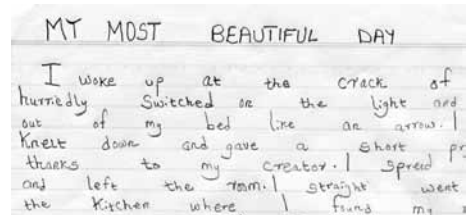 MY MOST BEAUTIFUL DAY
I woke up at the crack of
hurriedly switched on the light and
out of my bed like an arrow. I
Knelt down and gave a short pr
thanks to my creator. I spread
and left the room. I straight went
the Kitchen where I found my